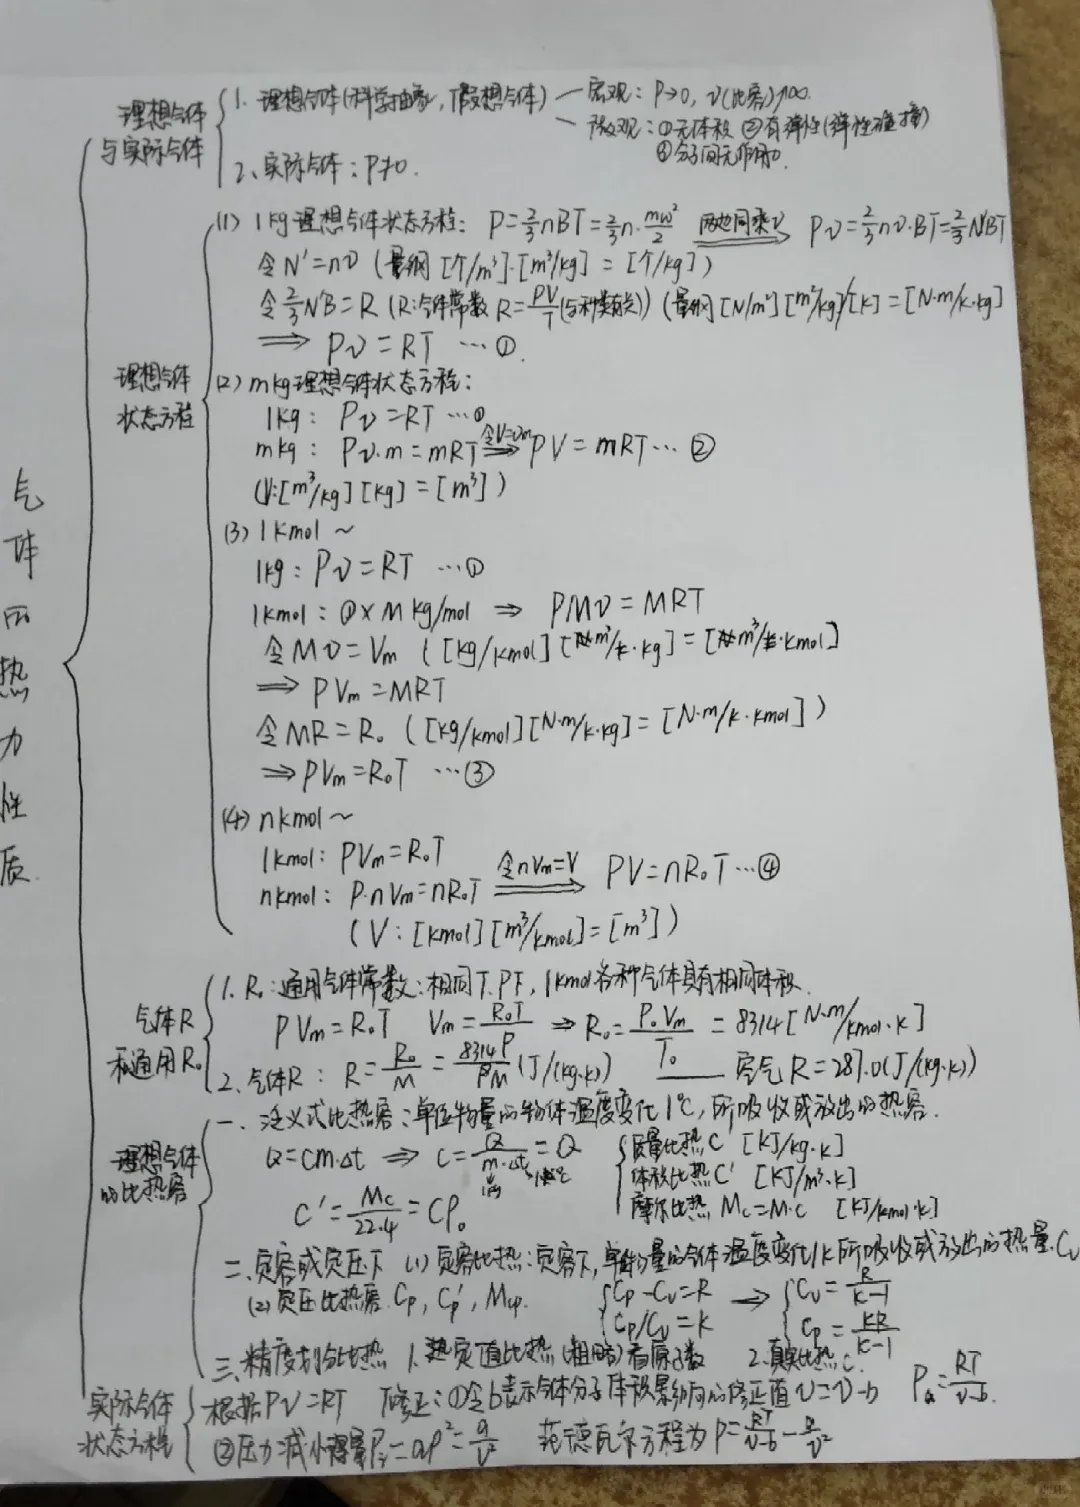 气体的热力性质
理想气体与实际气体
1. 理想气体(科学抽象,假想气体) — 宏观: P→0, v(比容)→∞.
— 微观: ①无体积 ②有弹性(弹性碰撞)
③分子间无作用力.
2、实际气体: P≠0.
理想气体状态方程
(1) 1kg理想气体状态方程: P=2/3nBT=2/3n·mw²/2 两边同乘v ⟹ Pv=2/3nv·BT=2/3N'BT
令N'=nv (量纲[个/m³]·[m³/kg]=[个/kg])
令2/3N'B=R (R:气体常数 R=PV/T(与种类有关)) (量纲[N/m²][m³/kg]/[K]=[N·m/K·kg]
⟹ Pv=RT …①.
(2) mkg理想气体状态方程:
1kg: Pv=RT …①
mkg: Pv·m=mRT 令V=vm ⟹ PV=mRT … ②
(V:[m³/kg][kg]=[m³])
(3) 1kmol ~
1kg: Pv=RT …①
1kmol: ①×M kg/mol ⇒ PMv=MRT
令Mv=Vm
⟹ PVm=MRT
令MR=R₀ ([kg/kmol][N·m/k·kg]=[N·m/k·kmol])
⟹PVm=R₀T …③
(4) nkmol ~
1kmol: PVm=R₀T
nkmol: P·nVm=nR₀T 令nVm=V ⟹ PV=nR₀T …④
(V:[kmol][m³/kmol]=[m³])
气体R和通用R₀
1. R₀:通用气体常数:相同T.P下,1kmol各种气体具有相同体积.
PVm=R₀T Vm=R₀T/P ⇒ R₀=P₀Vm/T₀ =8314[N·m/kmol·K]
2.气体R: R=R₀/M=8314P/PM(J/(kg·k)) 空气R=287.0(J/(kg·k))
理想气体的比热容
一、泛义式比热容:单位物量的物体温度变化1℃,所吸收或放出的热容.
Q=cm·Δt ⇒ c=Q/m·Δt=Q
质量比热C [KJ/kg·k]
体积比热C' [KJ/m³·k]
摩尔比热Mc=M·c [KJ/kmol·k]
C'=Mc/22.4=Cρ₀
二、定容或定压下 (1)定容比热:定容下,单位物量的气体温度变化1K所吸收或放出的热量.Cv
(2)定压比热容.Cp, Cp', Mcp.
Cp-Cv=R
Cp/Cv=K
⟹ Cv=R/K-1
Cp=KR/K-1
三、精度划分比热 1.热定值比热(粗略)看原子数 2.真实比热C.
实际气体状态方程
根据Pv=RT 修正:①令b表示气体分子体积影响的修正值v=v-b Pa=RT/v-b.
②压力减小 =aρ²=a/v² 范德瓦尔方程为P=RT/v-b-a/v²